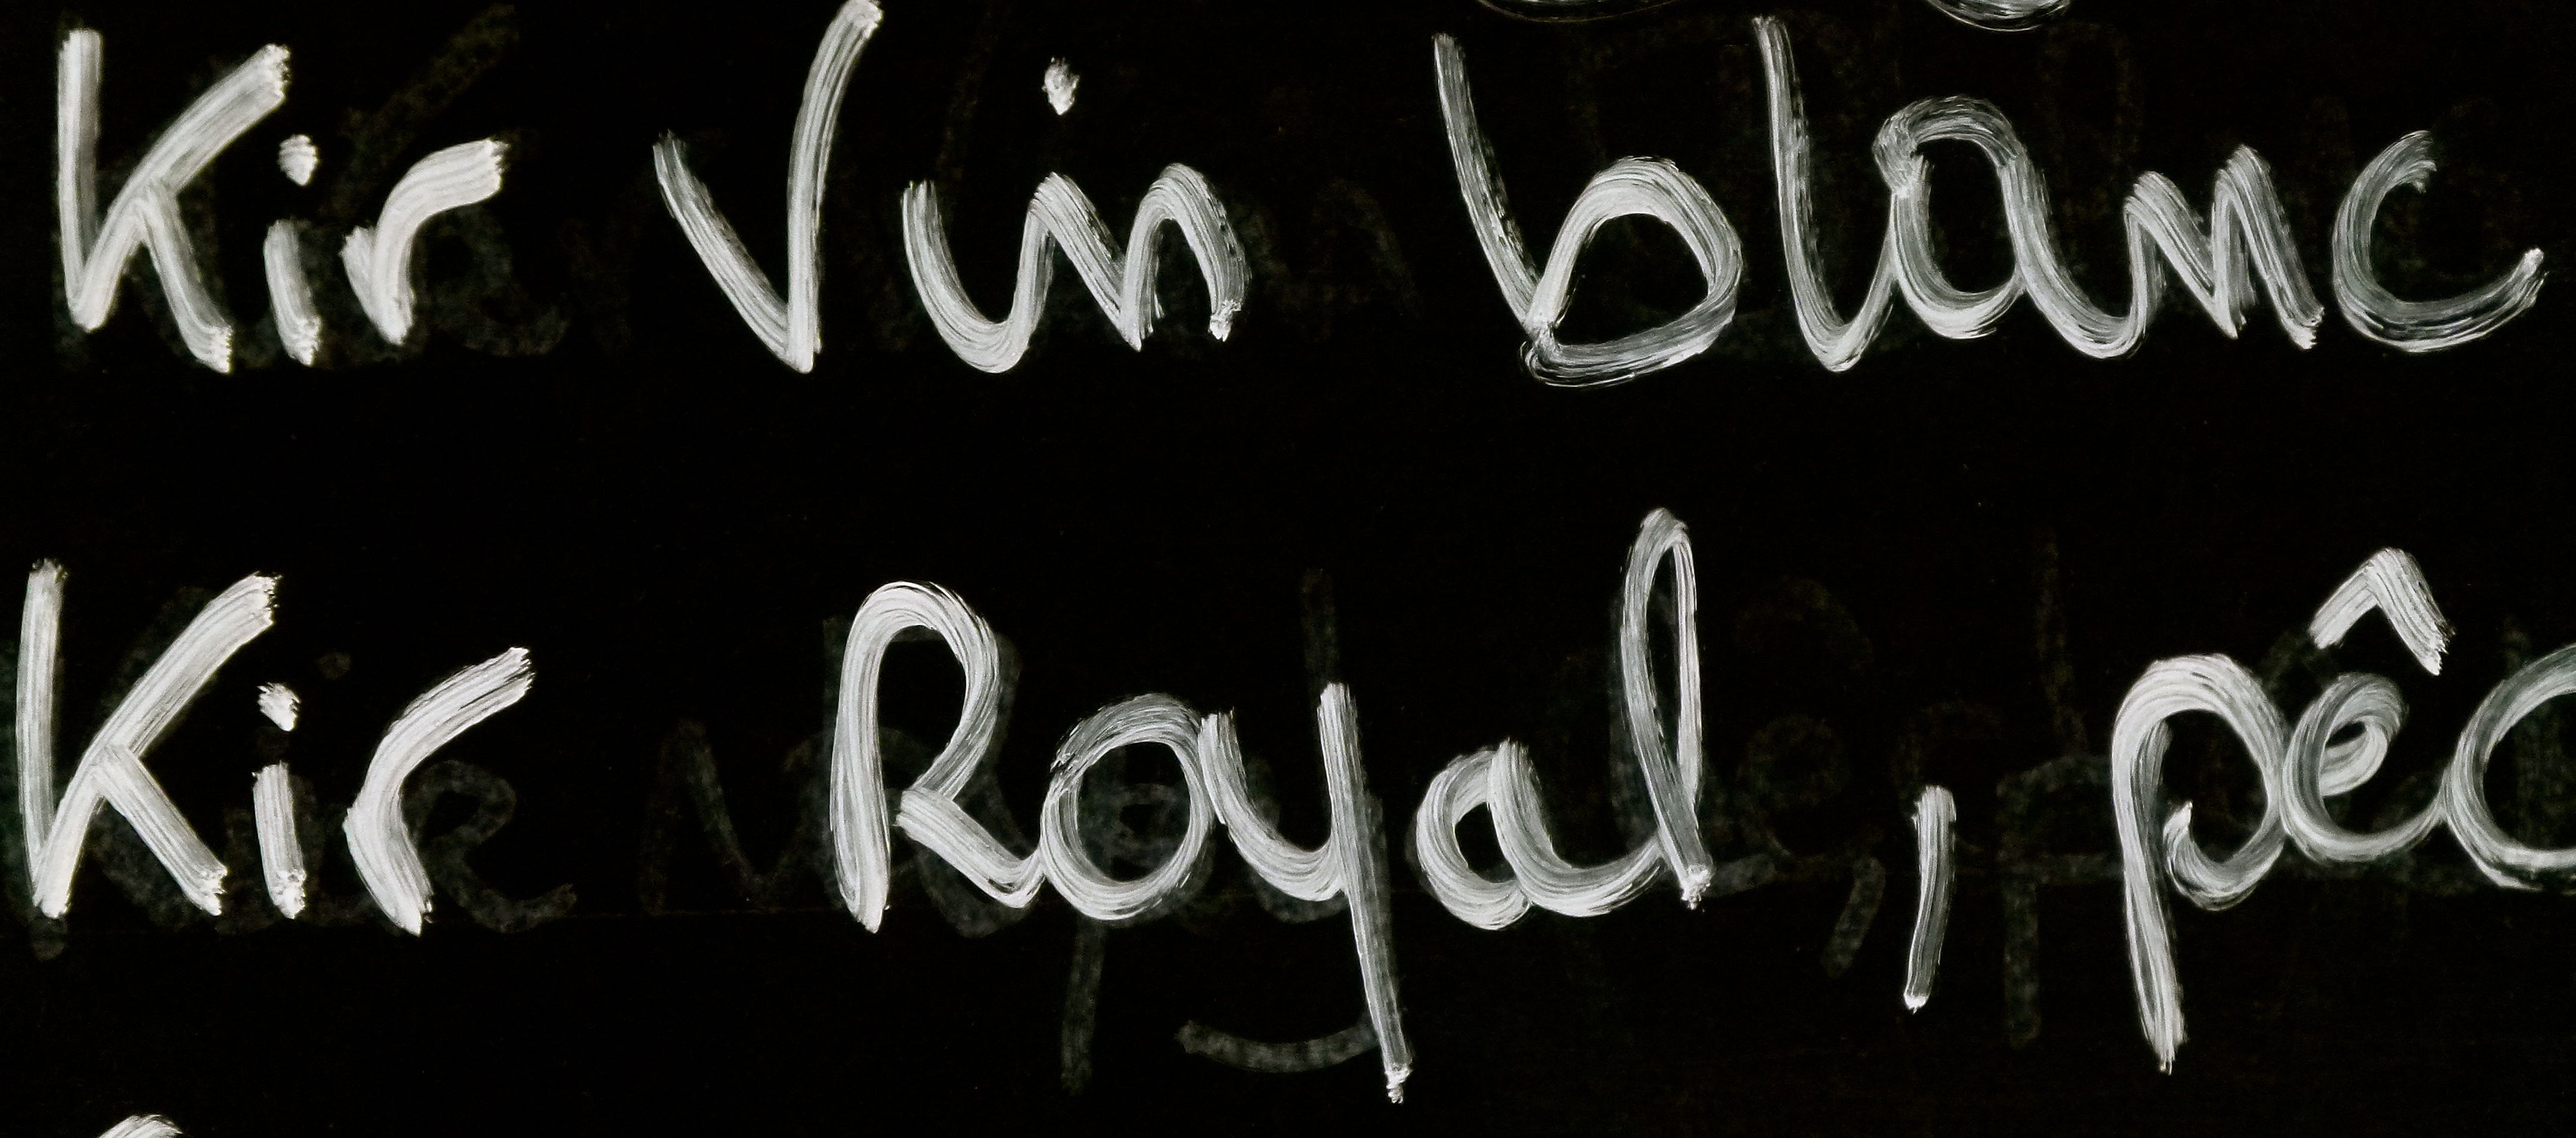 Kir Vin blanc
Kir Royal, pê